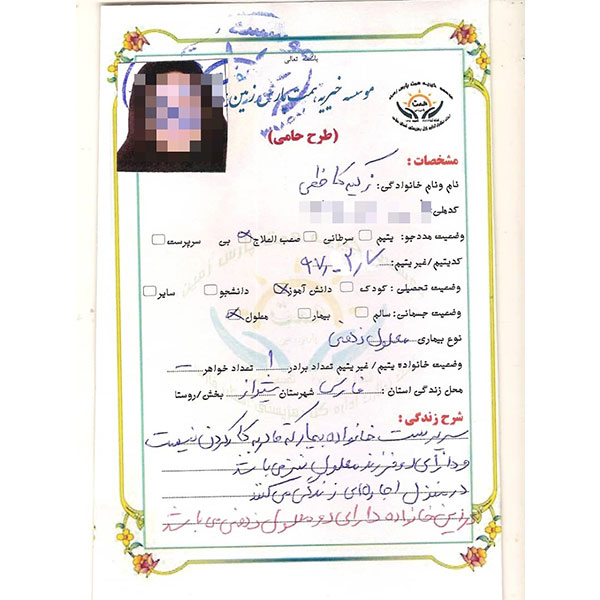 بسمه تعالی
موسسه خیریه همت
(طرح حامی)
مشخصات :
نام ونام خانوادگی: زکیه کاظمی
کدملی:
وضعیت مددجو: یتیم سرطانی صعب العلاج بی سرپرست
کدیتیم/غیر یتیم:
وضعیت تحصیلی : کودک دانش آموز دانشجو سایر
وضعیت جسمانی: سالم بیمار معلول
نوع بیماری معلول ذهنی
وضعیت خانواده یتیم / غیر یتیم تعداد برادر 1 تعداد خواهر
محل زندگی استان : فارس شهرستان شیراز بخش/روستا
شرح زندگی :
سرپرست خانواده بیمار که قادر به کار کردن نیست
و دارای دو فرزند معلول نیز می باشد
در منزل اجاره ای زندگی می کنند
در این خانواده دارای دو معلول ذهنی می باشد